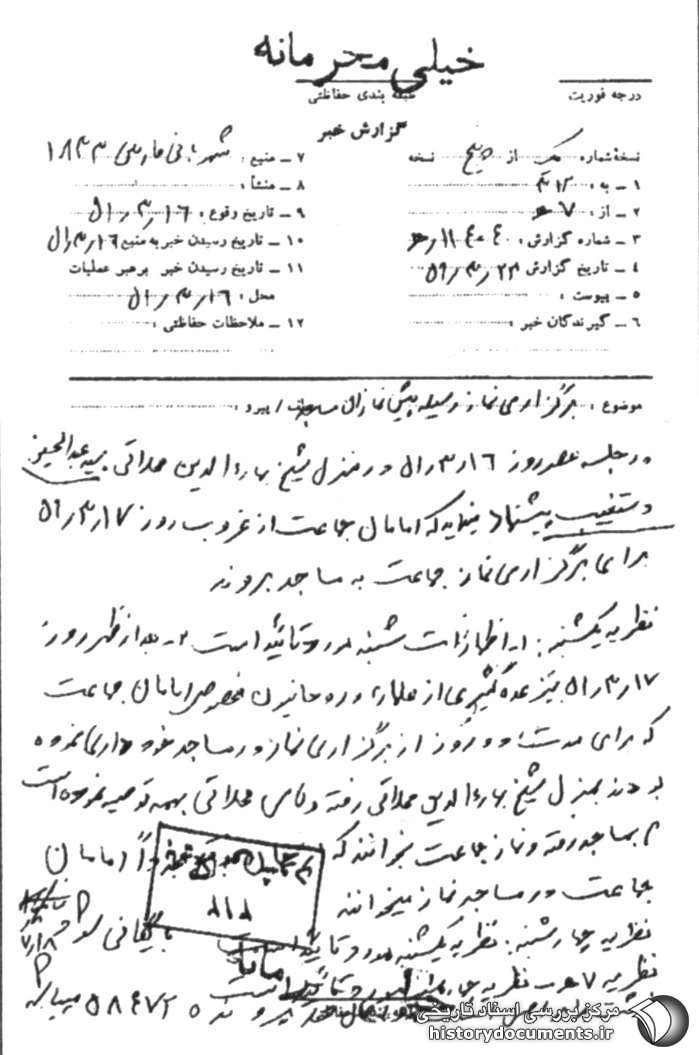 خیلی محرمانه
طبقه بندی حفاظتی
درجه فوریت
گزارش خبر
نسخه شماره یک از پنج نسخه
۱ ـ به : ۳۱۲
۲ ـ از : ۷ هـ
۳ ـ شماره گزارش :
۴ ـ تاریخ گزارش
۵ ـ پیوست :
۶ ـ گیرندگان خبر :
۷ ـ منبع : ۱۸۴۳
۸ ـ منشأ :
۹ ـ تاریخ وقوع : ۱۶ر۳ر۵۱
۱۰ ـ تاریخ رسیدن خبر به منبع ۱۶ر۳ر۵۱
۱۱ ـ تاریخ رسیدن خبر برهبر عملیات
محل : ۱۶ر۳ر۵۱
۱۲ ـ ملاحظات حفاظتی :
موضوع : برگزاری نماز وسیله پیش نمازان مساجد / پیرو :
در جلسه عصر روز ۱۶ر۳ر۵۱ در منزل شیخ بهاءالدین محلاتی سید عبدالحسین
دستغیب پیشنهاد مینماید که امامان جماعت از غروب روز ۱۷ر۳ر۵۱
برای برگزاری نماز جماعت به مساجد بروند
نظریه یکشنبه : ۱ـ اظهارات شنبه مورد تائید است ۲ـ بعد از ظهر روز
۱۷ر۳ر۵۱ نیز عده کثیری از علماء و روحانیون مخصوصا امامان جماعت
که برای مدت دو روز از برگزاری نماز در مساجد خودداری نموده
بودند بمنزل شیخ بهاءالدین محلاتی رفته و نامبرده محلاتی بهمه توصیه نموده است
بمساجد رفته و نماز جماعت بخوانند که امامان
جماعت در مساجد نماز میخوانند
نظریه چهارشنبه : نظریه یکشنبه مورد تائید است
نظریه ۷ هـ ـ نظریه چهارشنبه مورد تائید است
مرکز بررسی اسناد تاریخی
historydocuments.ir